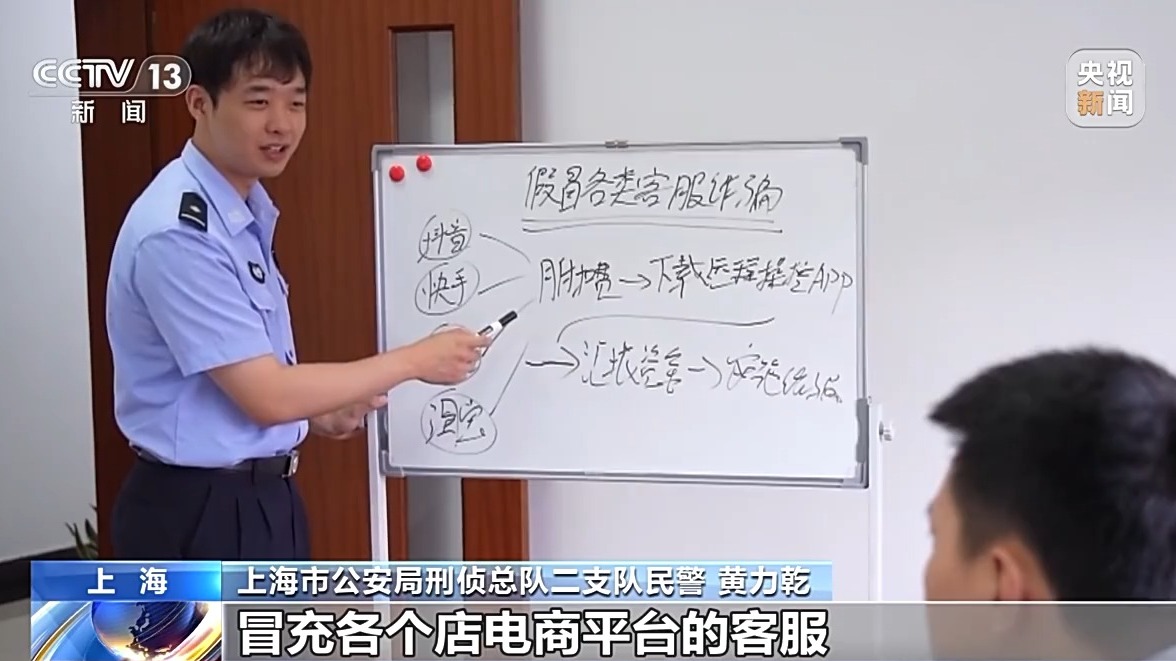 CCTV 13
新闻
央视
新闻
假冒各类客服诈骗
抖音
快手
淘宝
→下载远程操控APP
→资金→实施
上海
上海市公安局刑侦总队二支队民警 黄力乾
冒充各个店电商平台的客服